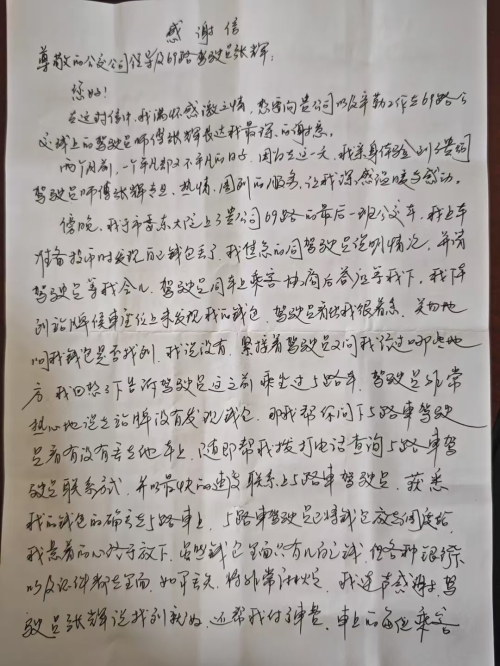 感谢信
尊敬的公交公司领导及69路驾驶员张辉：
您好！
在这封信中，我满怀感激之情，想要向贵公司以及辛勤工作在69路公
交线上的驾驶员师傅张辉表达我最深的谢意。
两个月前，一个平凡却又不平凡的日子，因为在这一天，我亲身体验到了贵公司
驾驶员师傅张辉专业、热情、周到的服务，让我深感温暖与感动。
傍晚，我于市音东大院上了贵公司69路的最后一班公交车，我上车
准备投币时发现自己钱包丢了，我焦急的向驾驶员说明情况，并请
驾驶员等我会儿，驾驶员同车上乘客协商后答应等我下，我下车
到站牌候车座位上未发现我的钱包，驾驶员看出我很着急，关切地
问我钱包是否找到，我说没有，紧接着驾驶员又问我去过哪些地
方，我回想了下告诉驾驶员这之前乘坐过5路车，驾驶员非常
热心地说在站牌没有发现钱包，那我帮你问下5路車驾驶
员看有没有丢在他车上，随即帮我拨打电话查询5路車驾
驶员联系方式，并以最快的速度联系上5路車驾驶员，获悉
我的钱包的确丢在5路車上，5路車驾驶员已将钱包放在调度站，
我悬着的心终于放下，虽然钱包里面只有几百元钱，但各种银行卡
以及证件都在里面，如果丢失，将非常麻烦，我连声感谢，驾
驶员张辉说找到就好，还帮我付了車费，車上的每位乘客